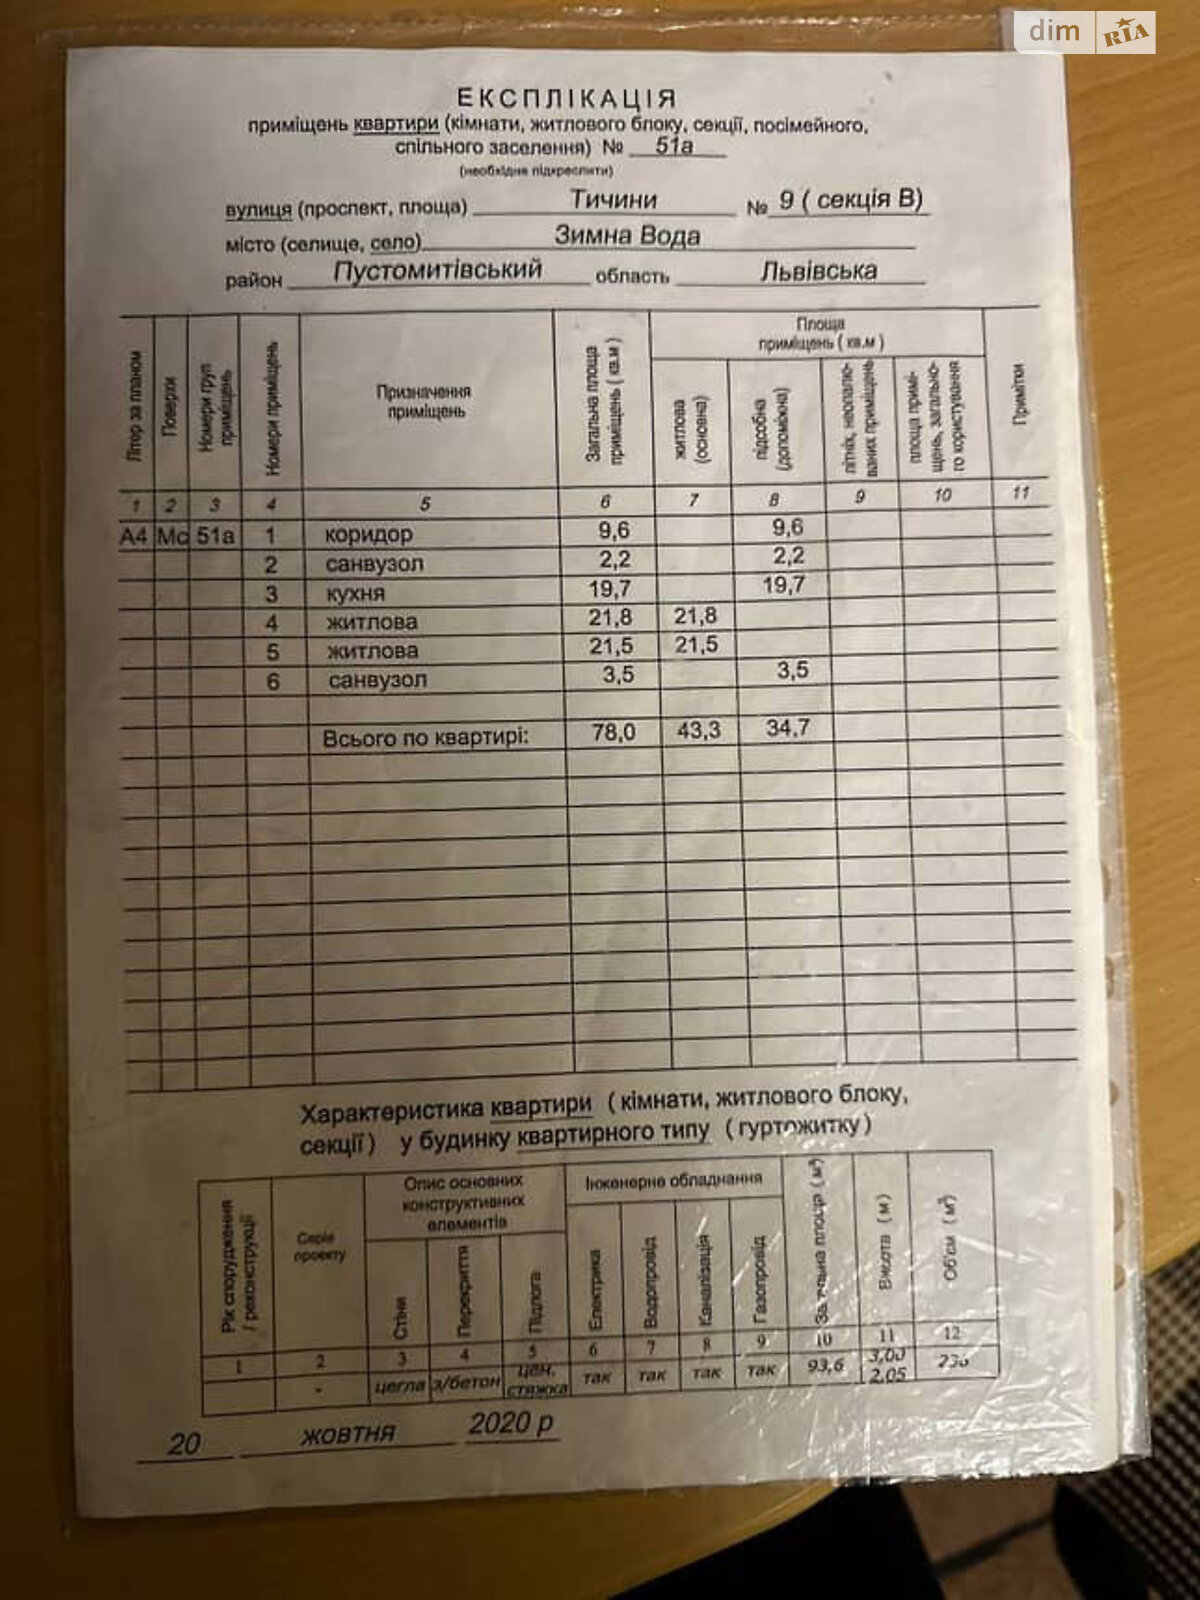 dim RIA
ЕКСПЛІКАЦІЯ
приміщень квартири (кімнати, житлового блоку, секції, посімейного,
спільного заселення) № 51а
(необхідне підкреслити)
вулиця (проспект, площа) Тичини № 9 ( секція В)
місто (селище, село) Зимна Вода
район Пустомитівський область Львівська
Літер за планом
Поверхи
Номери груп приміщень
Номери приміщень
Призначення приміщень
Загальна площа приміщень ( кв.м )
Площа приміщень ( кв.м )
житлова (основна)
підсобна (допоміжна)
літніх, неопалю-ваних приміщень
площа примі-щень, загально-го користування
Примітки
1 2 3 4 5 6 7 8 9 10 11
А4 Мс 51а 1 коридор 9,6 9,6
2 санвузол 2,2 2,2
3 кухня 19,7 19,7
4 житлова 21,8 21,8
5 житлова 21,5 21,5
6 санвузол 3,5 3,5
Всього по квартирі: 78,0 43,3 34,7
Характеристика квартири ( кімнати, житлового блоку,
секції ) у будинку квартирного типу ( гуртожитку )
Рік спорудження / реконструкції
Серія проекту
Опис основних конструктивних елементів
Стіни
Перекриття
Підлога
Інженерне обладнання
Електрика
Водопровід
Каналізація
Газопровід
площа ( м²)
Висота ( м )
Об'єм ( м³)
1 2 3 4 5 6 7 8 9 10 11 12
- цегла з/бетон цем. стяжка так так так так 93,6 3,00 2,05
20 жовтня 2020 р